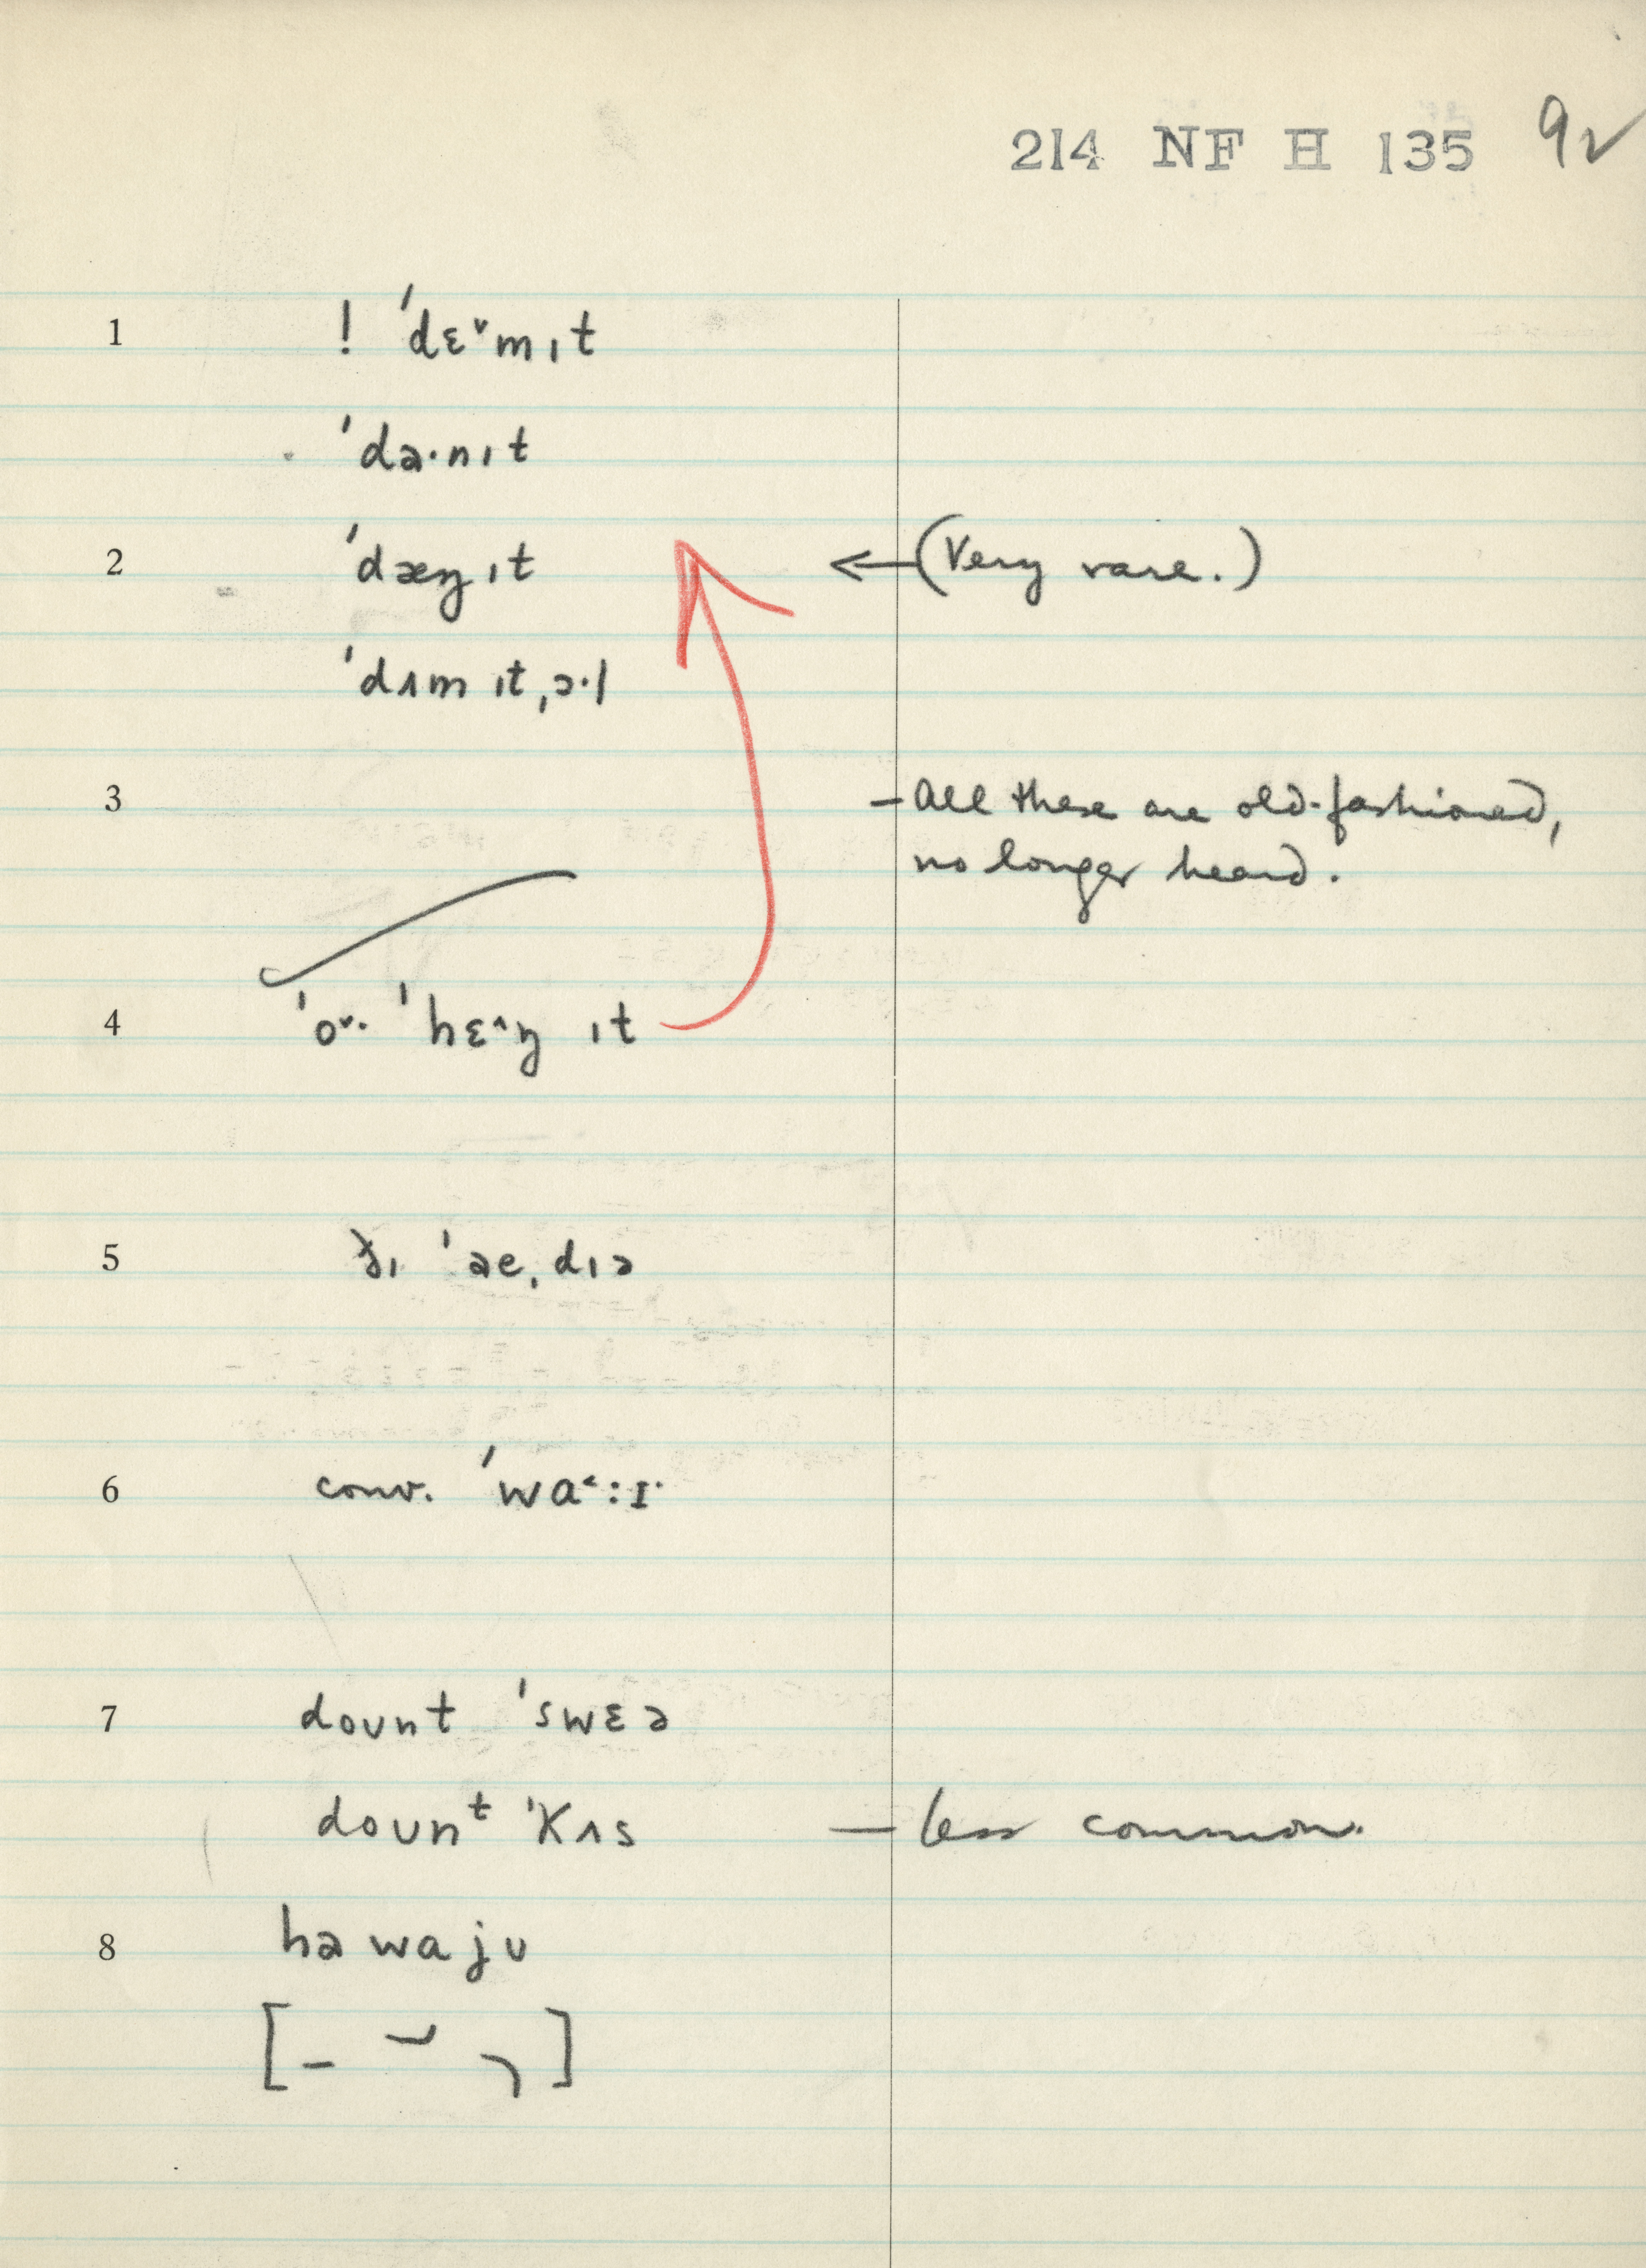 214 NF H 135 92
1 ! ˈdɛ˅mɪt
ˈdə·nɪt
2 ˈdæŋ ɪt ← (Very rare.)
ˈdʌm ɪt ˌɔ·l
3 – All these are old-fashioned,
no longer heard.
4 ˈo˅· ˈhɛ˄ŋ ɪt
5 ðɪ ˈae ˌdɪə
6 conv. ˈwa˂:ɪ·
7 doʊnt ˈswɛə
doʊnᵗ ˈkʌs — less common.
8 hə wa jʊ